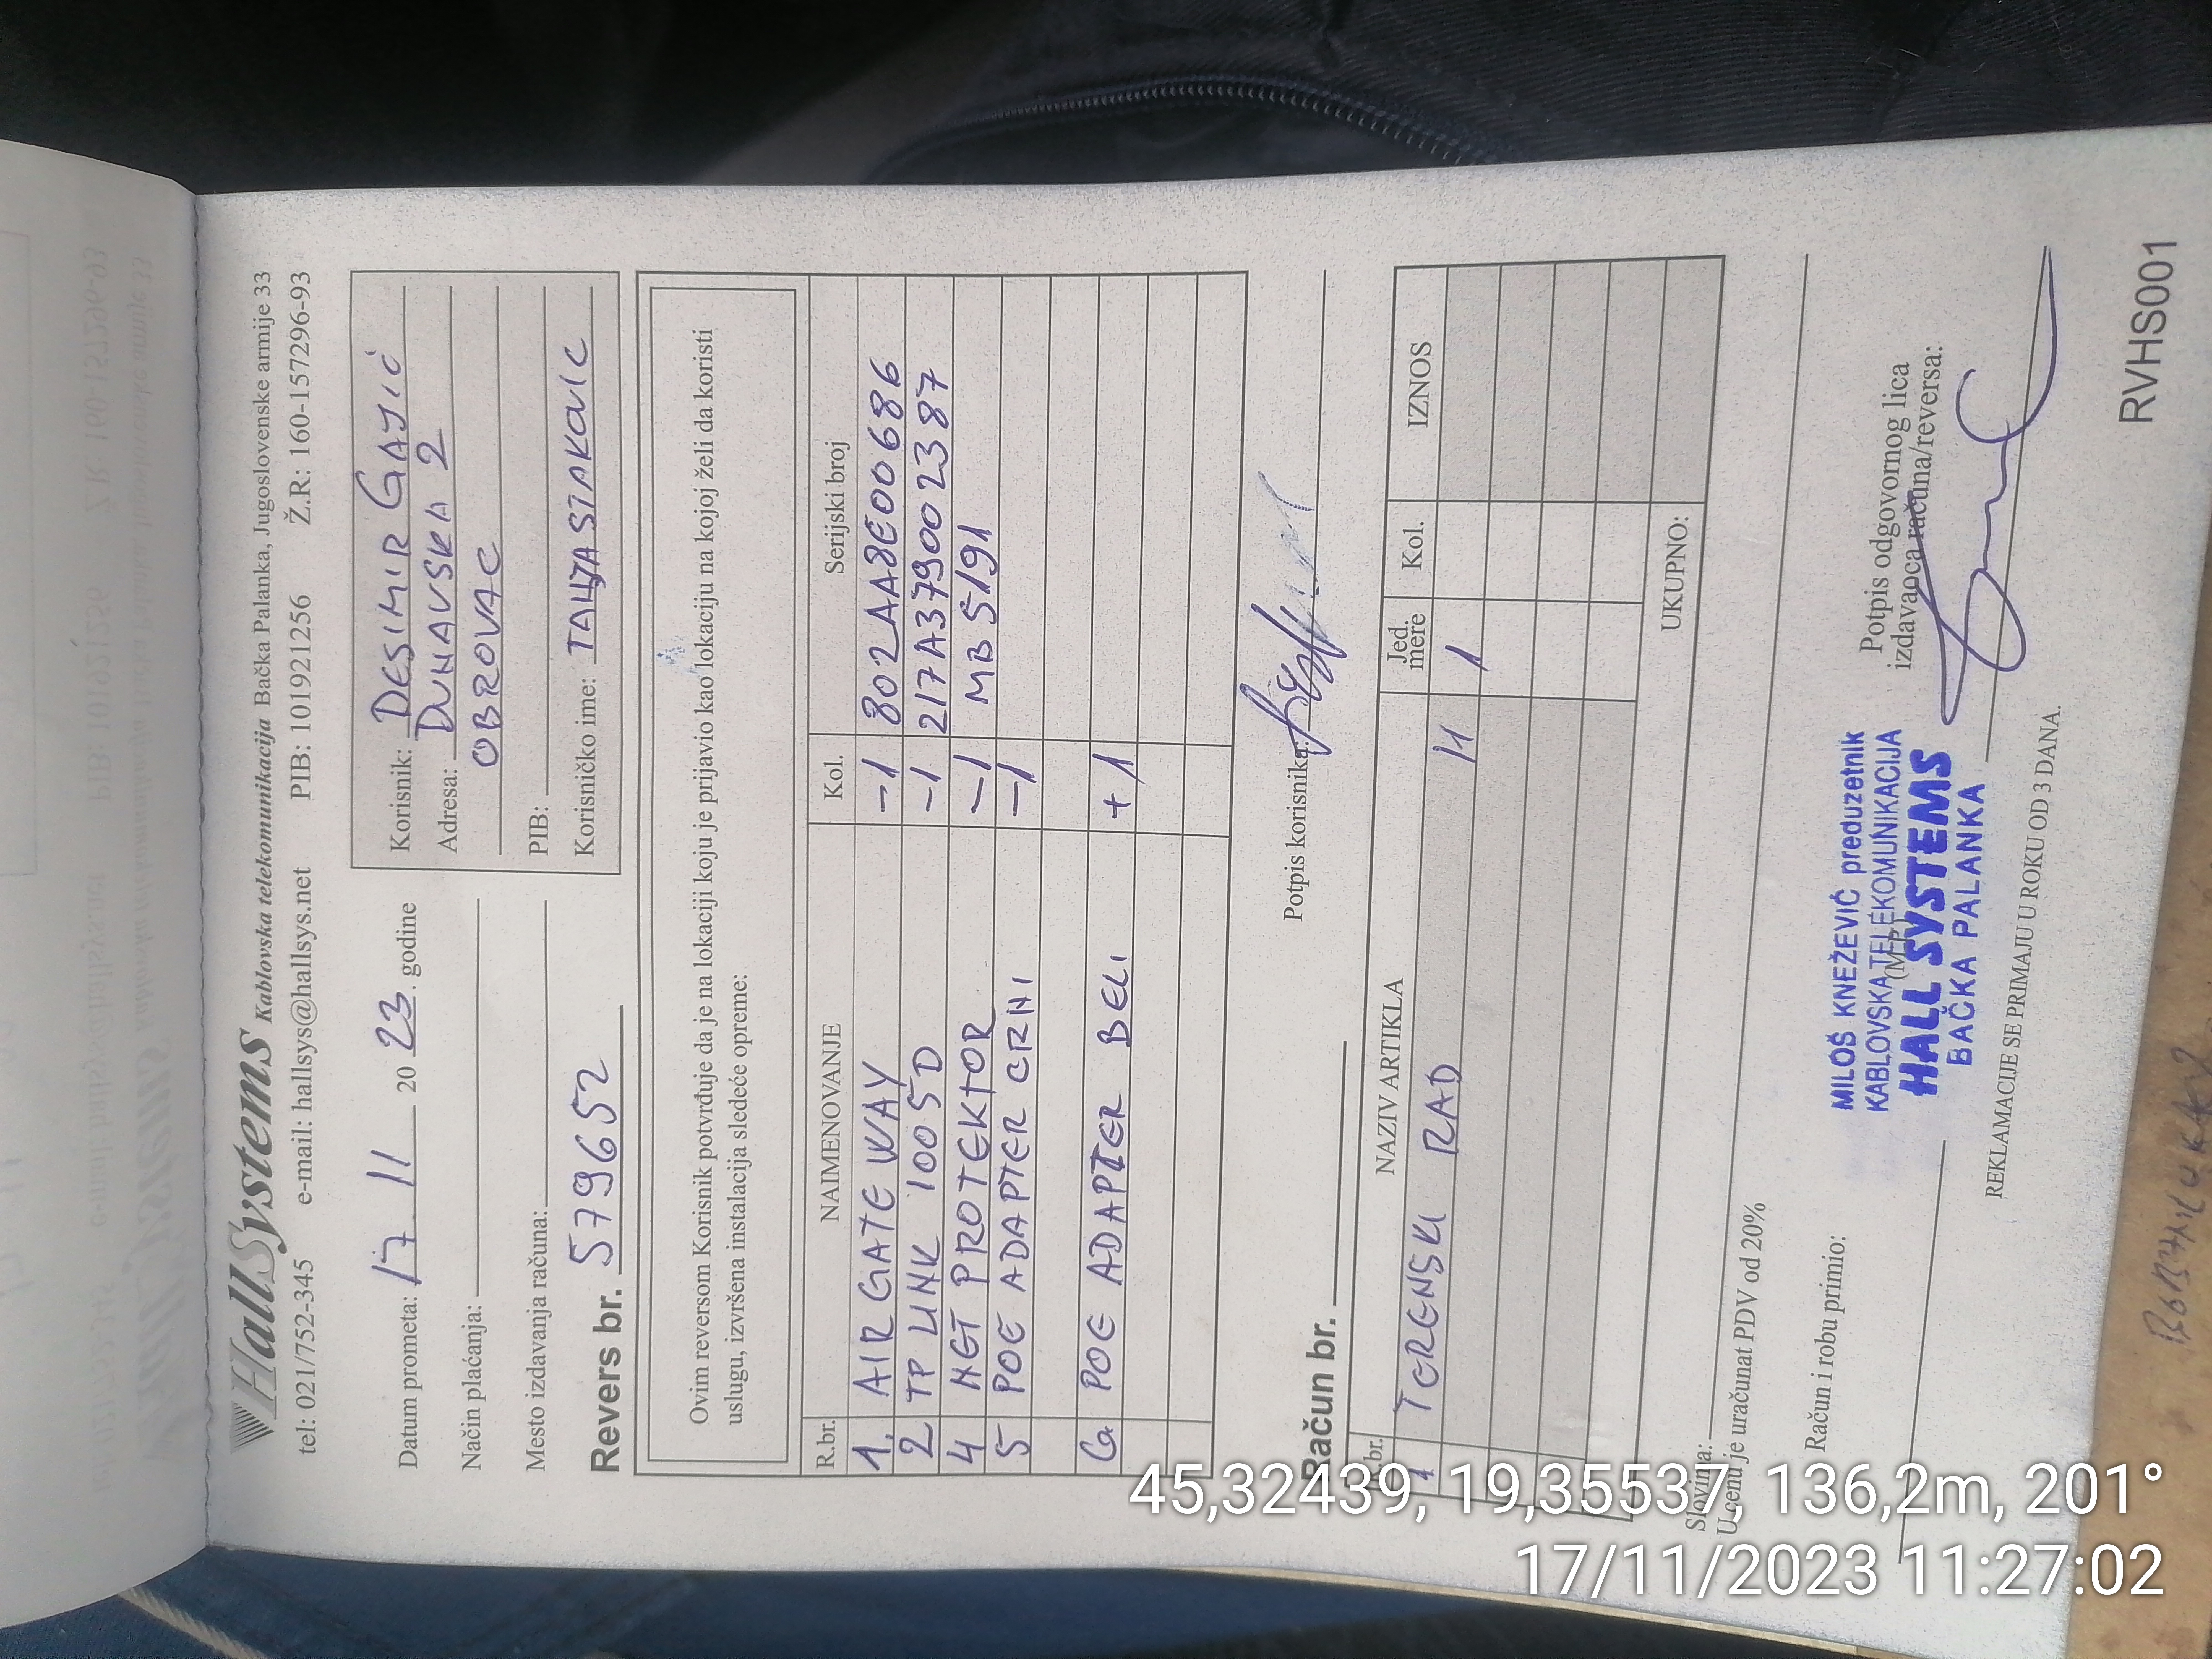 HallSystems Kablovska telekomunikacija Bačka Palanka, Jugoslovenske armije 33
tel: 021/752-345 e-mail: hallsys@hallsys.net PIB: 101921256 Ž.R: 160-157296-93
Datum prometa: 17. 11 20 23. godine
Način plaćanja:
Mesto izdavanja računa:
Revers br. 579652
Korisnik: DESIMIR GAJIĆ
Adresa: DUNAVSKA 2
OBROVAC
PIB:
Korisničko ime:
Ovim reversom Korisnik potvrđuje da je na lokaciji koju je prijavio kao lokaciju na kojoj želi da koristi
uslugu, izvršena instalacija sledeće opreme:
R.br. NAIMENOVANJE Kol. Serijski broj
1. AIR GATE WAY -1 802AA8E00686
2 TP LINK 1005D -1 217A379002387
4 NET PROTEKTOR -1 MB5191
5 POE ADAPTER CRNI -1
6 POE ADAPTER BELI +1
Potpis korisnika:
Račun br.
R.br. NAZIV ARTIKLA Jed. mere Kol. IZNOS
1 TERENSKI RAD H 1
UKUPNO:
Slovima:
U cenu je uračunat PDV od 20%
Račun i robu primio:
(MP)
Potpis odgovornog lica
izdavaoca računa/reversa:
MILOŠ KNEŽEVIĆ preduzetnik
KABLOVSKA TELEKOMUNIKACIJA
HALL SYSTEMS
BAČKA PALANKA
REKLAMACIJE SE PRIMAJU U ROKU OD 3 DANA.
RVHS001
45,32439, 19,35537, 136,2m, 201°
17/11/2023 11:27:02